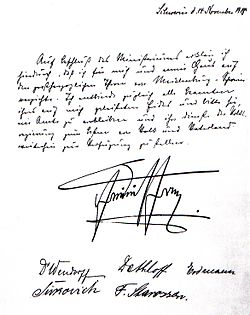 Schwerin d. 14 November 1918
Auf Beschluß des Ministeriums erkläre ich
hierdurch, daß ich für mich und mein Haus auf
den großherzoglichen Thron von Mecklenburg-Schwerin
verzichte. Ich entbinde zugleich alle Beamten
ihres auf mich geleisteten Eides und bitte sie,
im Amte zu verbleiben und ihre Dienste der Volks-
regierung zum Besten von Volk und Vaterland
weiterhin zur Verfügung zu stellen.
Friedrich Franz
Dr Wendorff Dethloff Erdmann
Sivkovich F. Starosson.